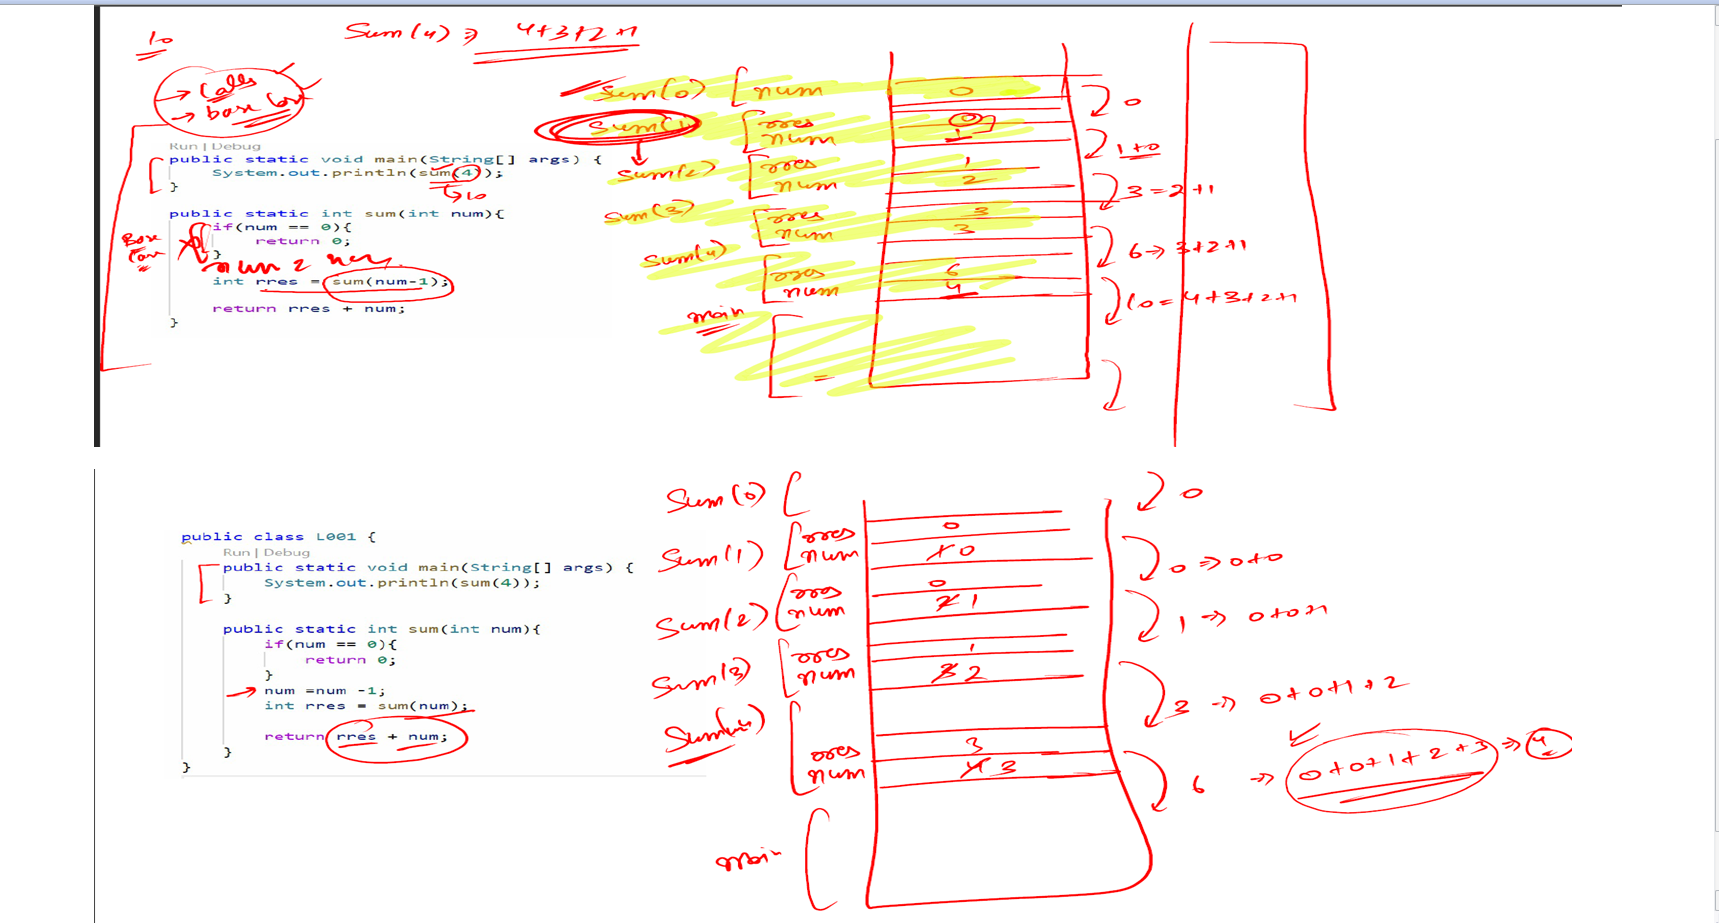 10
Sum(4) ⇒ 4+3+2+1
→ Calls
→ base Case
Run | Debug
public static void main(String[] args) {
System.out.println(sum(4));
↳ 10
}
public static int sum(int num){
if(num == 0){
return 0;
}
Base
Case
int rres = sum(num-1);
return rres + num;
}
Sum(0) [ num 0
0
Sum(1) [ rres 0
num 1
1+0
Sum(2) [ rres 1
num 2
3 = 2+1
Sum(3) [ rres 3
num 3
6 ⇒ 3+2+1
Sum(4) [ rres 6
num 4
10 = 4+3+2+1
main
public class L001 {
Run | Debug
public static void main(String[] args) {
System.out.println(sum(4));
}
public static int sum(int num){
if(num == 0){
return 0;
}
→ num =num -1;
int rres = sum(num);
return rres + num;
}
}
Sum(0) [
0
Sum(1) [ rres 0
num 1 0
0 ⇒ 0+0
Sum(2) [ rres 0
num 2 1
1 ⇒ 0+0+1
Sum(3) [ rres 1
num 3 2
3 ⇒ 0+0+1+2
Sum(4) [ rres 3
num 4 3
6 ⇒ 0+0+1+2+3 ⇒ 4
main [